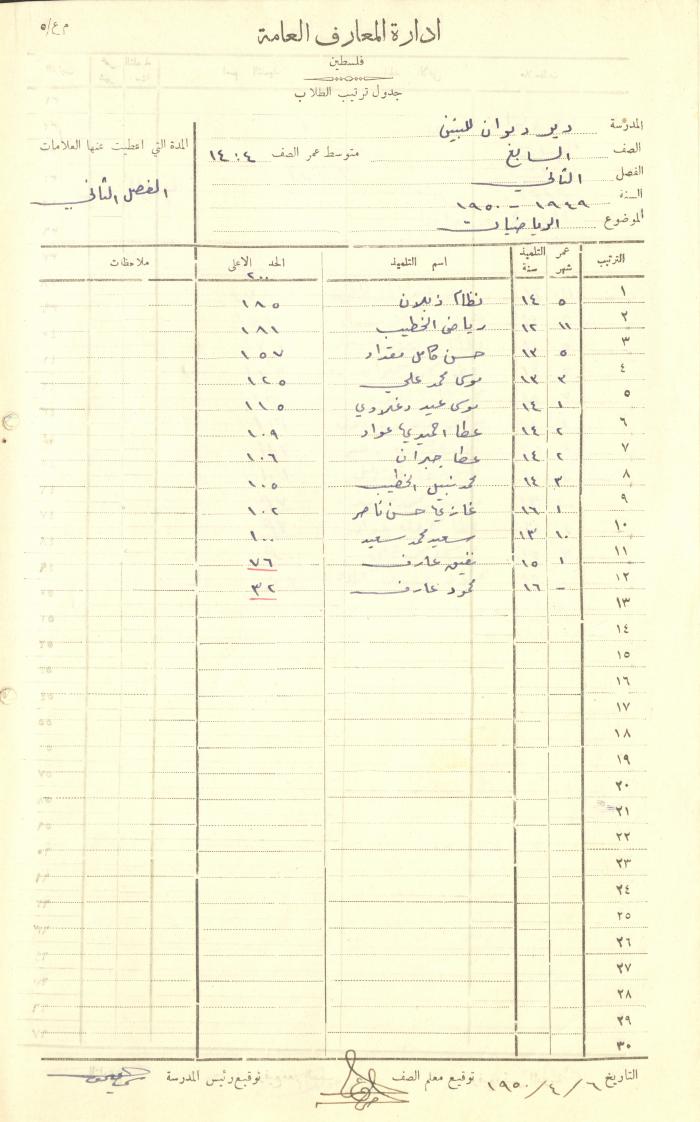 م ع/٥
ادارة المعارف العامة
فلسطين
جدول ترتيب الطلاب
المدرسة دير ديوان للبنين
الصف السابع متوسط عمر الصف ١٤:٤
الفصل الثاني
السنة ١٩٤٩ - ١٩٥٠
الموضوع الرياضيات
المدة التي اعطيت عنها العلامات
الفصل الثاني
الترتيب عمر التلميذ شهر سنة اسم التلميذ الحد الاعلى ٢٠٠ ملاحظات
١ ٥ ١٤ نظام ذبلان ١٨٥
٢ ١١ ١٢ رياض الخطيب ١٨١
٣ ٥ ١٣ حسن كامل مقداد ١٥٧
٤ ٣ ١٣ موسى محمد علي ١٢٥
٥ ١ ١٤ موسى عيد ١١٥
٦ ٢ ١٤ عطا عواد ١٠٩
٧ ٢ ١٤ عطا جبران ١٠٦
٨ ٣ ١٤ محمد نبيل الخطيب ١٠٥
٩ ١ ١٦ غازي حسن ناصر ١٠٢
١٠ ١٠ ١٣ سعيد محمد سعيد ١٠٠
١١ ١ ١٥ عارف ٧٦
١٢ - ١٦ محمود عارف ٣٢
١٣
١٤
١٥
١٦
١٧
١٨
١٩
٢٠
٢١
٢٢
٢٣
٢٤
٢٥
٢٦
٢٧
٢٨
٢٩
٣٠
التاريخ ٦/٤/١٩٥٠ توقيع معلم الصف توقيع رئيس المدرسة